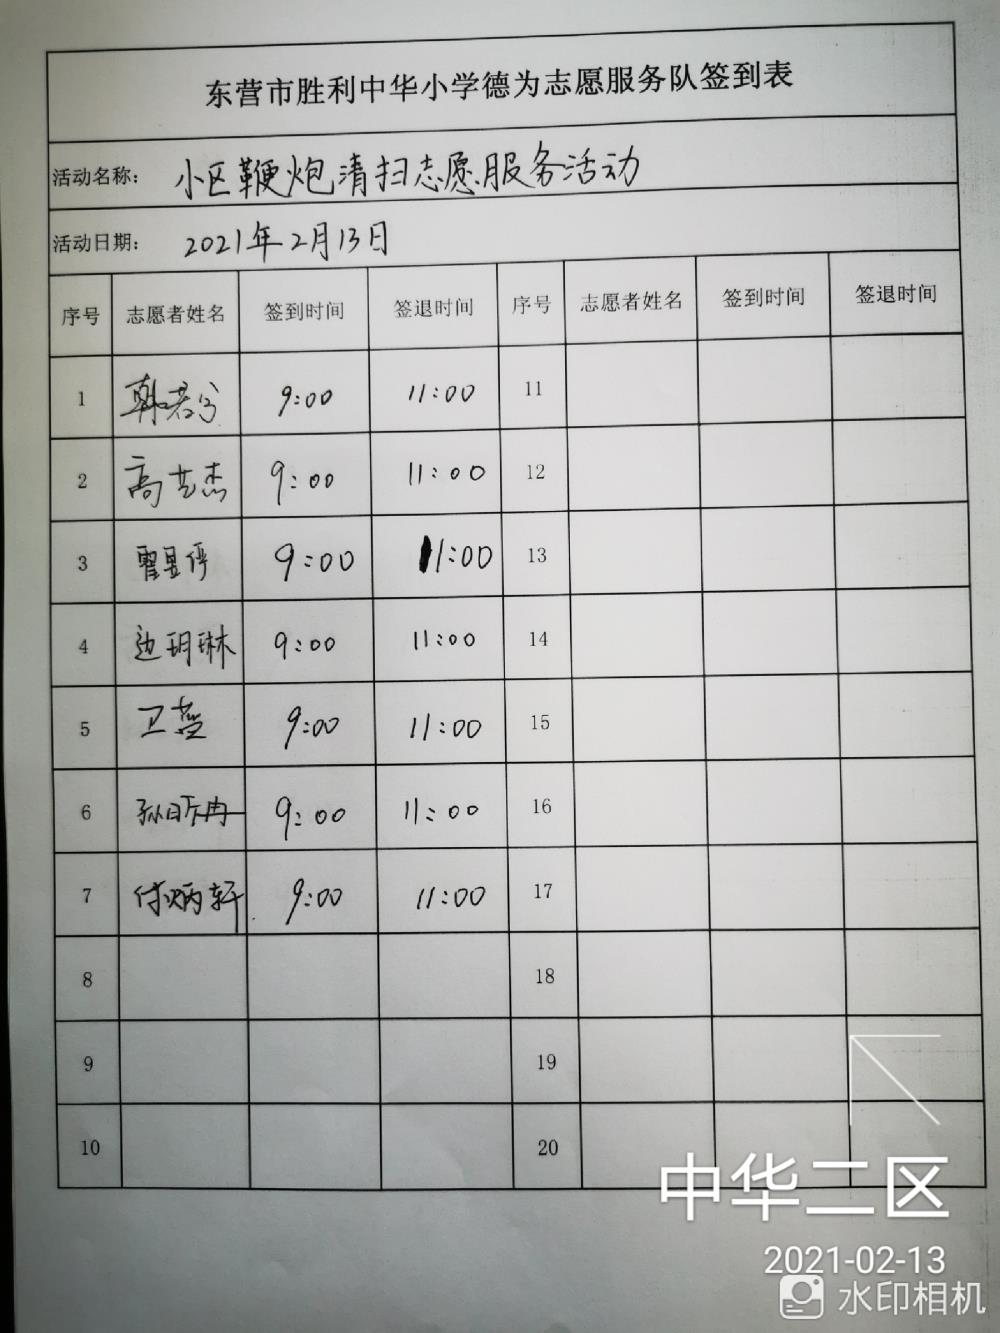 东营市胜利中华小学德为志愿服务队签到表
活动名称: 小区鞭炮清扫志愿服务活动
活动日期: 2021年2月13日
序号 志愿者姓名 签到时间 签退时间 序号 志愿者姓名 签到时间 签退时间
1 9:00 11:00 11
2 高艺杰 9:00 11:00 12
3 9:00 11:00 13
4 边玥琳 9:00 11:00 14
5 9:00 11:00 15
6 9:00 11:00 16
7 付炳轩 9:00 11:00 17
8 18
9 19
10 20
中华二区
2021-02-13
水印相机